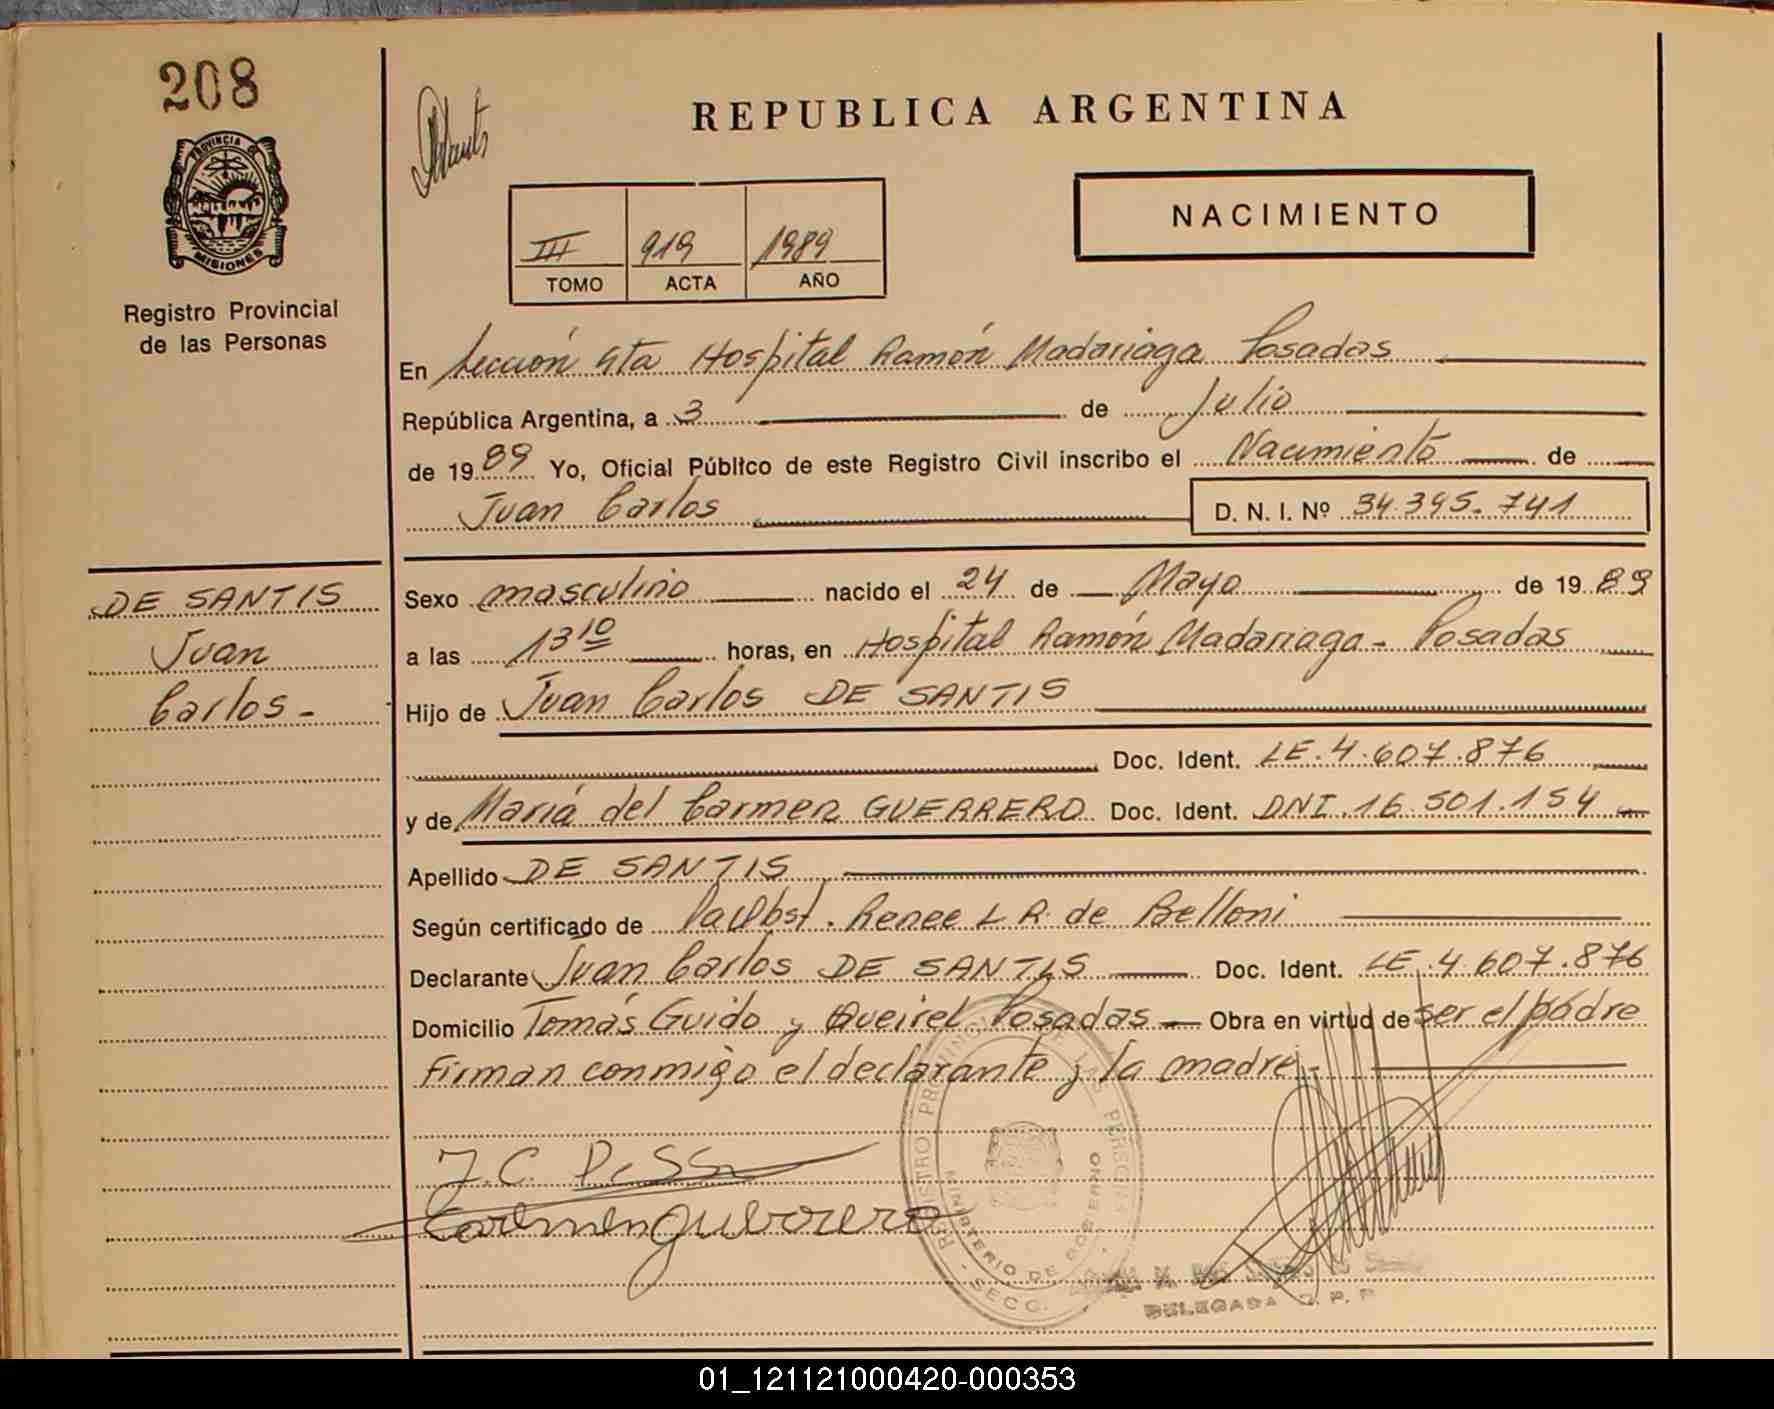 208
REPUBLICA ARGENTINA
PROVINCIA DE
MISIONES
Registro Provincial
de las Personas
NACIMIENTO
III 919 1989
TOMO ACTA AÑO
En Sección 4ta Hospital Ramón Madariaga Posadas
República Argentina, a 3 de Julio
de 1989 Yo, Oficial Público de este Registro Civil inscribo el Nacimiento de
Juan Carlos D. N. I. Nº 34.395.741
DE SANTIS
Juan
Carlos -
Sexo masculino nacido el 24 de Mayo de 1989
a las 13 10 horas, en Hospital Ramón Madariaga - Posadas
Hijo de Juan Carlos DE SANTIS
Doc. Ident. LE. 4.607.876
y de Mariá del Carmen GUERRERO Doc. Ident. DNI. 16.501.154
Apellido DE SANTIS
Según certificado de Obst. Renee L R. de Belloni
Declarante Juan Carlos DE SANTIS Doc. Ident. LE. 4.607.876
Domicilio Tomás Guido y Queirel. Posadas Obra en virtud de ser el padre
Firman conmigo el declarante y la madre -
J.C. De
Carmen guerrero
REGISTRO PROVINCIAL DE LAS PERSONAS
MINISTERIO DE GOBIERNO
- SECC.
DELEGADA
01_121121000420-000353